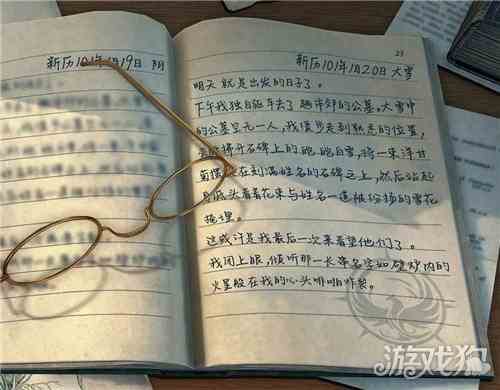 新历101年1月19日 阴
23
新历101年1月20日 大雪
明天就是出发的日子了。
下午我独自驱车去了趟市郊的公墓。大雪中
的公墓空无一人,我漫步走到熟悉的位置,
石碑上的皑皑白雪,将一束洋甘
菊摆在刻满姓名的石碑之上,然后站起
身低头看着花束与姓名一道被纷扬的雪花
掩埋。
这或许是我最后一次来看望他们了。
我闭上眼,倾听那一长串名字如壁炉内的
火星般在我的心头噼啪炸裂。
游戏狗